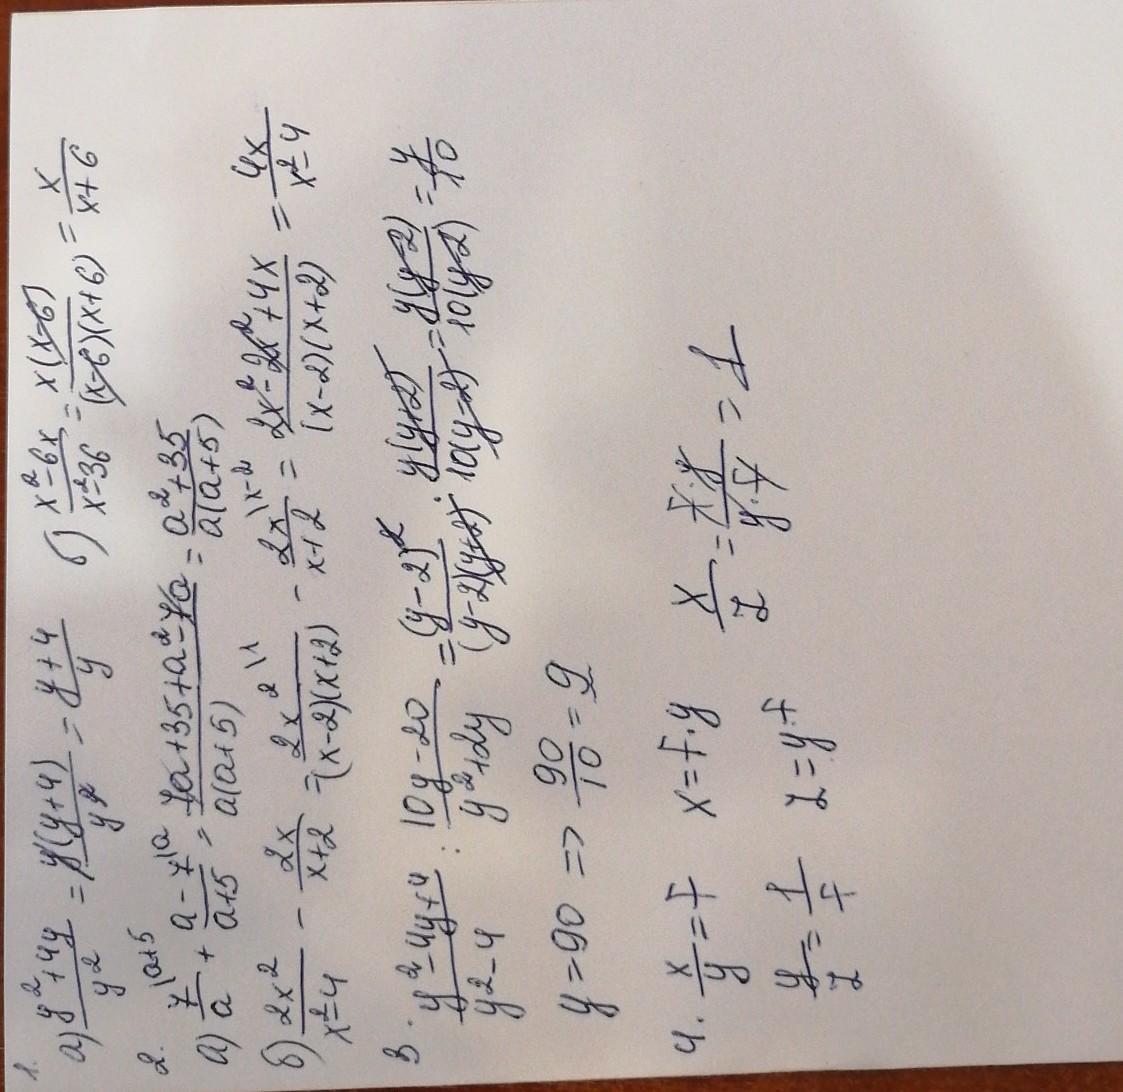 1.
а) \frac{y^2+4y}{y^2} = \frac{y(y+4)}{y^2} = \frac{y+4}{y} б) \frac{x^2-6x}{x^2-36} = \frac{x(x-6)}{(x-6)(x+6)} = \frac{x}{x+6}
2.
а) \frac{7}{a}^{\backslash a+5} + \frac{a-7}{a+5}^{\backslash a} = \frac{7a+35+a^2-7a}{a(a+5)} = \frac{a^2+35}{a(a+5)}
б) \frac{2x^2}{x^2-4} - \frac{2x}{x+2} = \frac{2x^2}{(x-2)(x+2)}^{\backslash 1} - \frac{2x}{x+2}^{\backslash x-2} = \frac{2x^2-2x^2+4x}{(x-2)(x+2)} = \frac{4x}{x^2-4}
3. \frac{y^2-4y+4}{y^2-4} : \frac{10y-20}{y^2+2y} = \frac{(y-2)^2}{(y-2)(y+2)} \cdot \frac{y(y+2)}{10(y-2)} = \frac{y(y-2)}{10(y-2)} = \frac{y}{10}
y=90 => \frac{90}{10} = 9
4. \frac{x}{y} = 7 x=7·y \frac{x}{z} = \frac{7·y}{y·7} = 1
\frac{y}{z} = \frac{1}{7} z=y·7